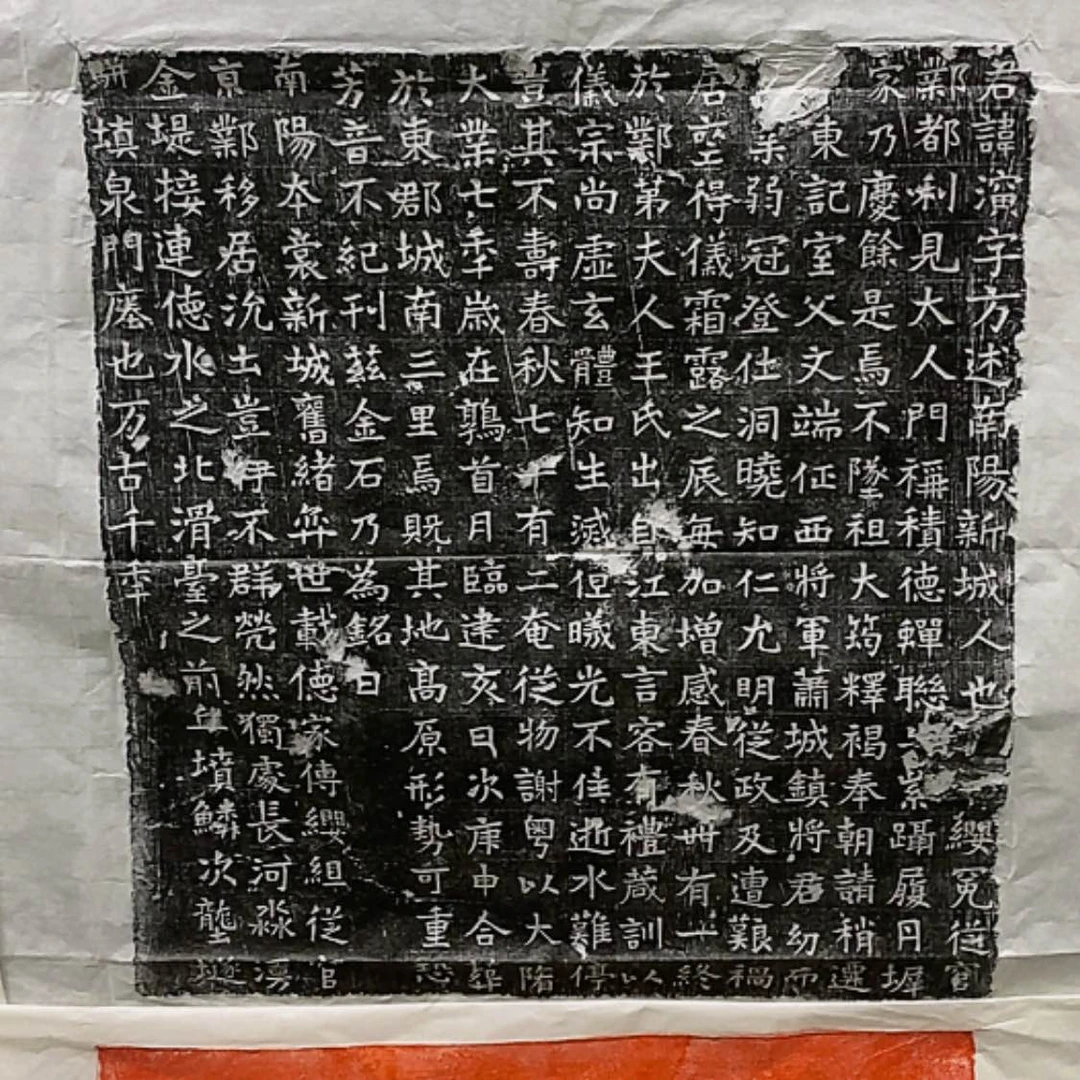 君諱演字方述南陽新城人也纓冕從宦
鄴都利見大人門稱積德蟬聯紫躡履丹墀
家乃慶餘是焉不墜祖大筠釋褐奉朝請稍遷
東記室父文端征西將軍蕭城鎮將君幼而
弱冠登仕洞曉知仁允明從政及遭艱禍
居堊得儀霜露之辰每加增感春秋卌有一終
於鄴第夫人王氏出自江東言容有禮葴訓以
儀宗尚虛玄體知生滅但曦光不住逝水難停
豈其不壽春秋七十有二奄從物謝粵以大隋
大業七年歲在鶉首月臨建亥日次庚申合葬
於東郡城南三里焉既其地高原形勢可重恐
芳音不紀刊茲金石乃為銘曰
南陽本裳新城舊緒弈世載德家傳纓組從官
京鄴移居沇土豈伊不群煢然獨處長河淼湧
金堤接連德水之北滑臺之前丘墳鱗次壟
填泉門廕也万古千年